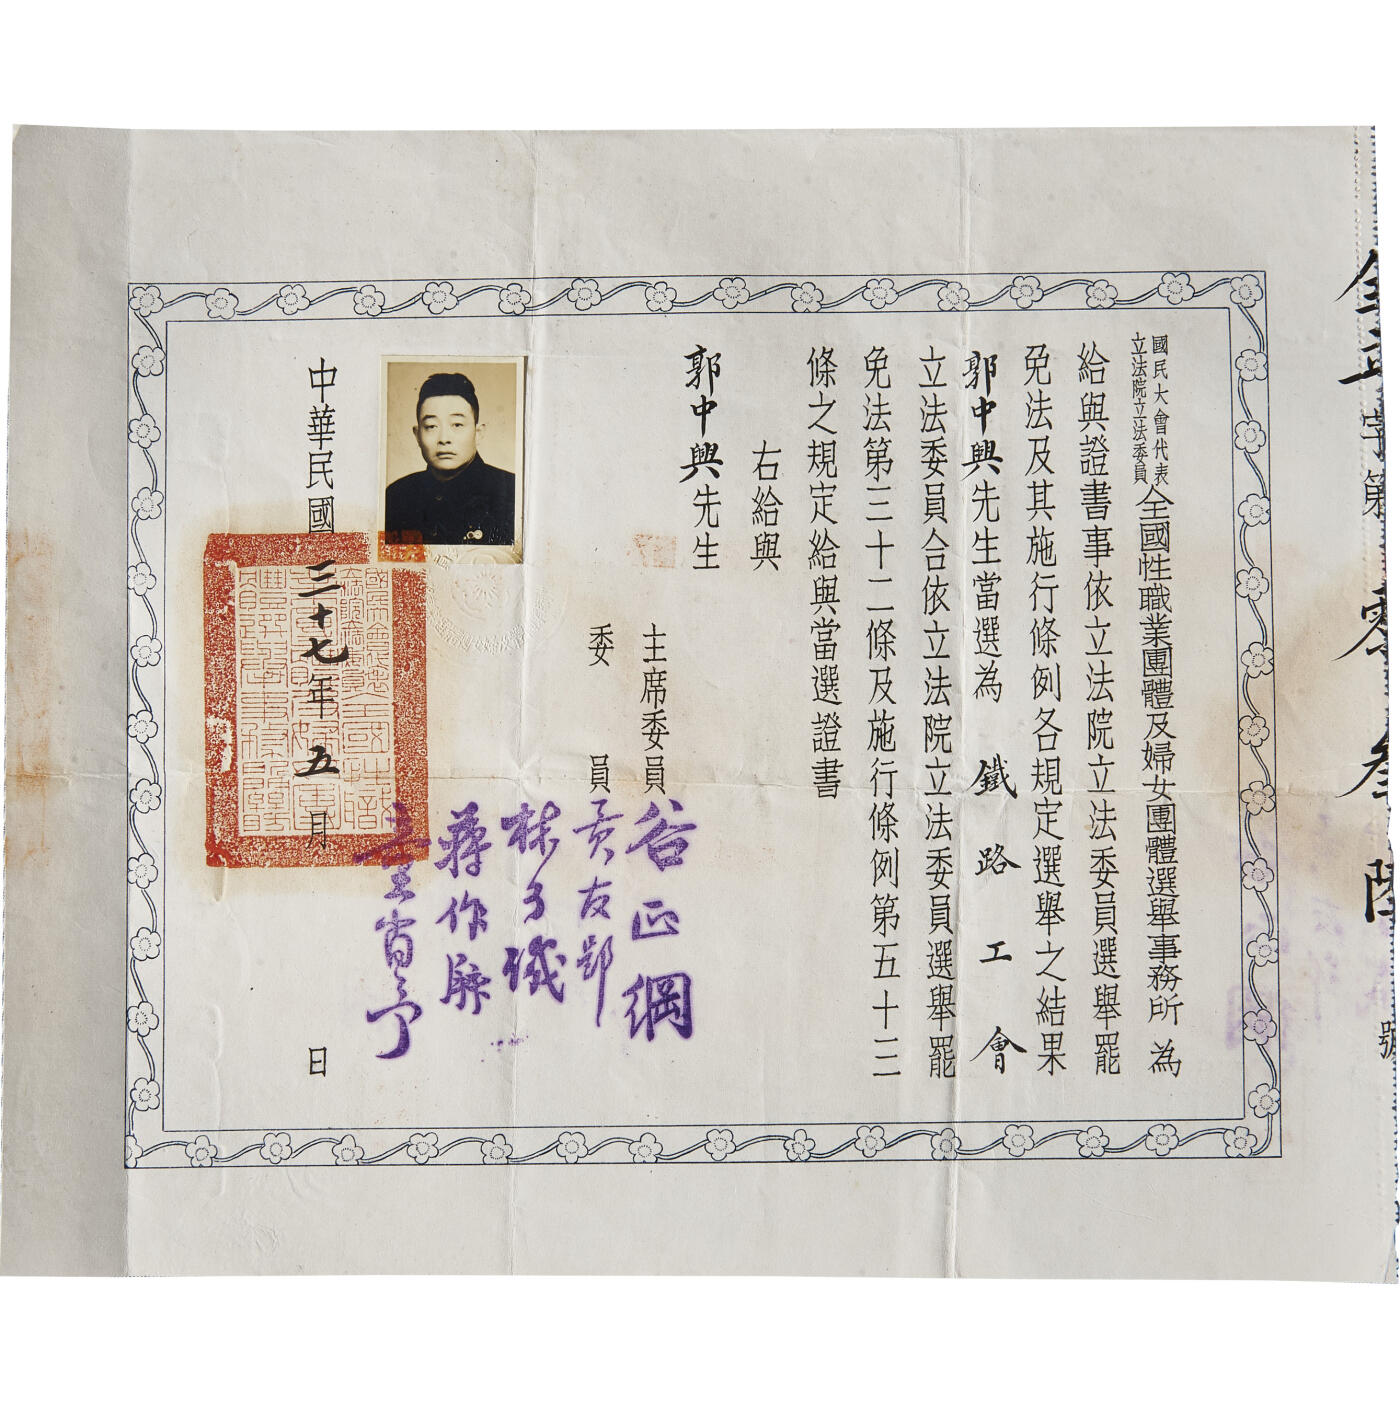 全立字第零叁陸號
國民大會代表
立法院立法委員
全國性職業團體及婦女團體選舉事務所為
給與證書事依立法院立法委員選舉罷
免法及其施行條例各規定選舉之結果
郭中興先生當選為 鐵路工會
立法委員合依立法院立法委員選舉罷
免法第三十二條及施行條例第五十三
條之規定給與當選證書
右給與
郭中興先生
主席委員 谷正綱
委員 黃友郢
蔣作
中華民國三十七年五月 日